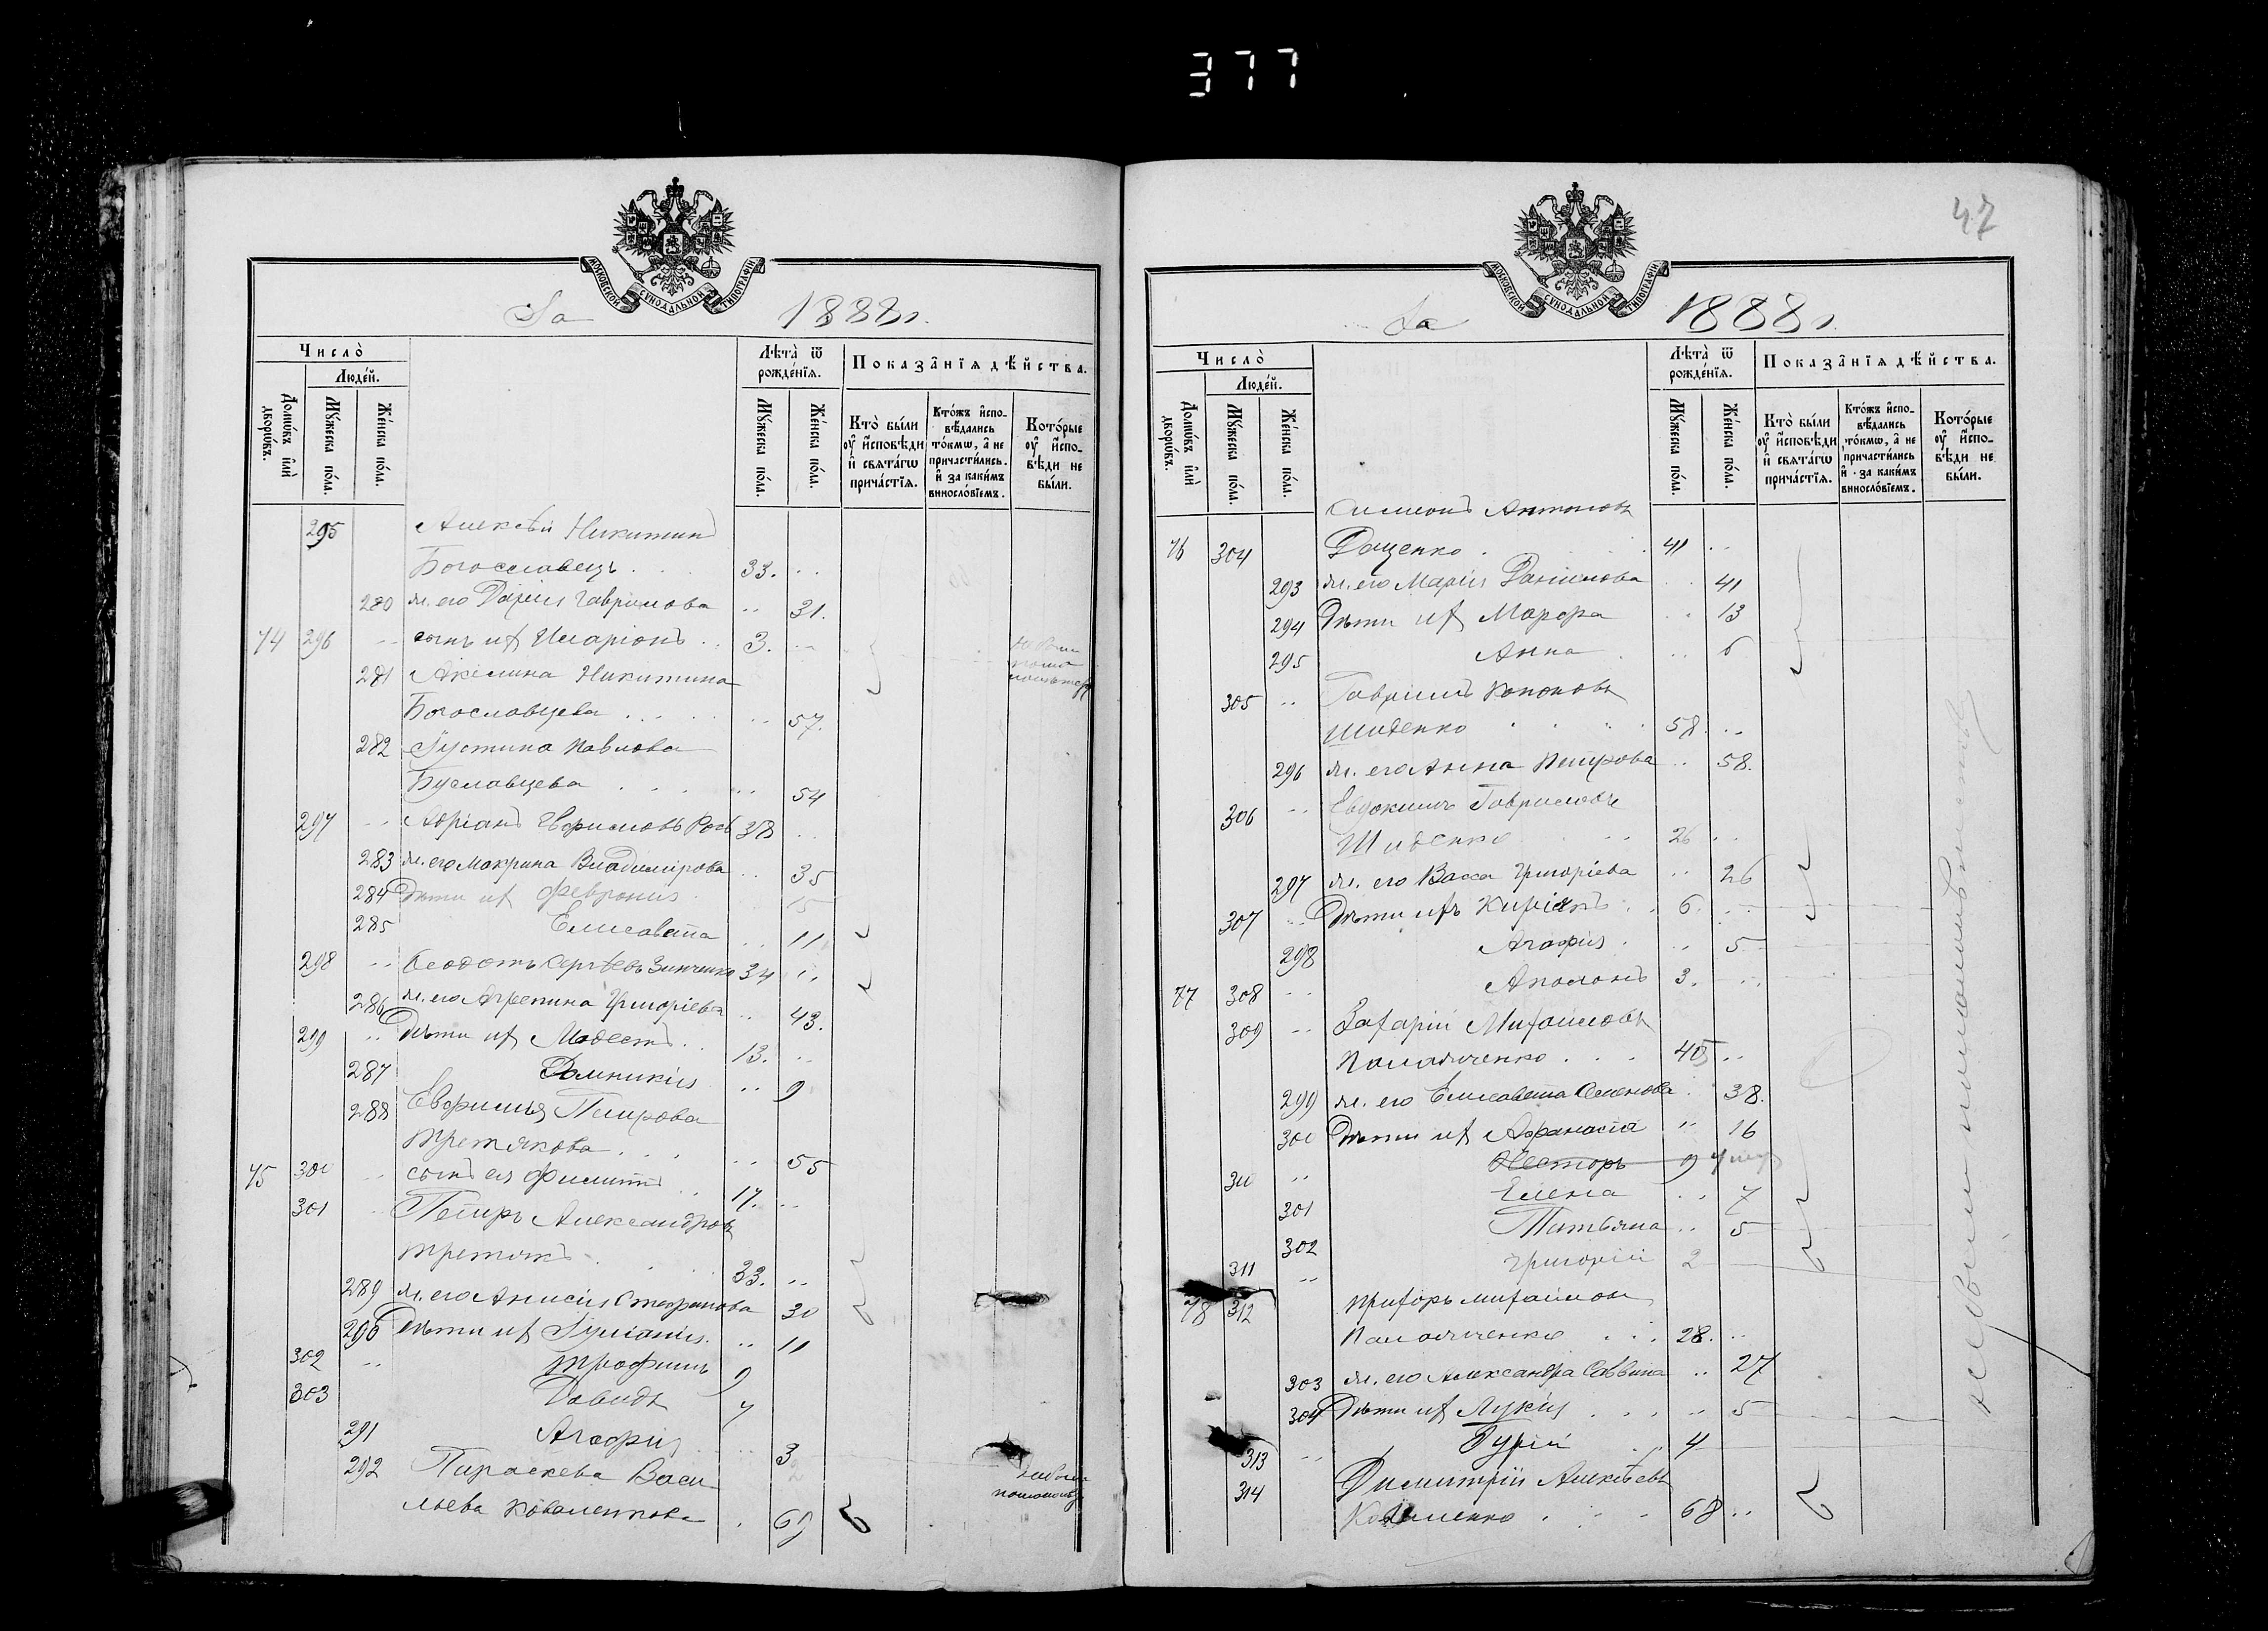 377
МОСКОВСКОЙ СѴНОДАЛЬНОЙ ТИПОГРАФІИ
За 1888 г.
Число̀
Люде́й.
Домѡ́въ и҆лѝ дворѡ́въ.
Мꙋ́жеска по́ла.
Же́нска по́ла.
Лѣта̀ ѿ рожде́нїѧ.
Мꙋ́жеска по́ла.
Же́нска по́ла.
Показа̑нїѧ дѣ́йства.
Кто̀ бы́ли оу҆ и҆́сповѣди и҆ свѧта́гѡ прича́стїѧ.
Кто́жъ и҆спо- вѣ́дались то́кмѡ, а҆ не причасти́лись. и҆ за каки́мъ винослові́емъ.
Кото́рые оу҆ и҆́спо- вѣди не бы́ли.
295 Алексѣй Никитинъ
Богославецъ . . . 33. ..
280 ж. его Дарія Гаврилова .. 31.
74 296 .. сынъ их Иларіонъ . . 3. ..
281 Акелина Никитина
Богославцева . . . . .. 57.
282 Іустина Павлова
Буславцева . . . . .. 54
297 .. Адріанъ Ефимовъ 38 ..
283 ж. его Макрина Владимірова .. 35
284 Дѣти их Февронія 15
285 Елисавета .. 11
298 .. Ѳеодотъ Сергѣевъ Зинченко 34 ..
286 ж. его Агрепина Григоріева .. 43.
299 .. Дѣти их Модестъ . . 13. ..
287 Домникія .. 9
288 Евфимія Петрова
Третякова . . . .. 55
75 300 .. сынъ ея Филиппъ . . 17. ..
301 .. Петръ Александровъ
Третякъ . . . . 33. ..
289 ж. его Анисія Стефанова 30
290 Дѣти их Іуліанія. .. 11
302 .. Трофимъ 9
303 Давидъ 7
291 Агафія .. 3
292 Параскева Васи
льева Коваленкова . 69
47
МОСКОВСКОЙ СѴНОДАЛЬНОЙ ТИПОГРАФІИ
За 1888 г.
Число̀
Люде́й.
Домѡ́въ и҆лѝ дворѡ́въ.
Мꙋ́жеска по́ла.
Же́нска по́ла.
Лѣта̀ ѿ рожде́нїѧ.
Мꙋ́жеска по́ла.
Же́нска по́ла.
Показа̑нїѧ дѣ́йства.
Кто̀ бы́ли оу҆ и҆́сповѣди и҆ свѧта́гѡ прича́стїѧ.
Кто́жъ и҆спо- вѣ́дались то́кмѡ, а҆ не причасти́лись и҆ за каки́мъ винослові́емъ.
Кото́рые оу҆ и҆́спо- вѣди не бы́ли.
Симеонъ Антоновъ
76 304 Доценко . . . 41 ..
293 ж. его Марія Даніилова .. 41
294 Дѣти их Марфа .. 13
295 Анна . .. 6
305 .. Гавріилъ Кононовъ
Шиденко . . . . 58. ..
296 ж. его Анна Петрова .. 58.
306 .. Евдокимъ Гавриловъ
Шиденко . . 26 ..
297 ж. его Васса Григоріева .. 26
307 .. Дѣти ихъ Киріакъ . . 6. ..
298 Агафія . .. 5
77 308 .. Аполонъ 3. ..
309 .. Захарій Михаиловъ
Паламаченко . . . 45 ..
299 ж. его Елисавета Семенова .. 38.
300 Дѣти их Афанасіа .. 16
310 .. Несторъ 9 умеръ
301 Елена .. 7
302 Татьяна .. 5
311 .. Григорій 2
78 312 Прохоръ Михаиловъ
Паламаченко . . . 28. ..
303 ж. его Александра Саввина .. 27
304 Дѣти их Лукія . . . .. 5
313 .. Гурій . . 4
314 Димитрій Алексѣевъ
Коваленко . . . 68 ..